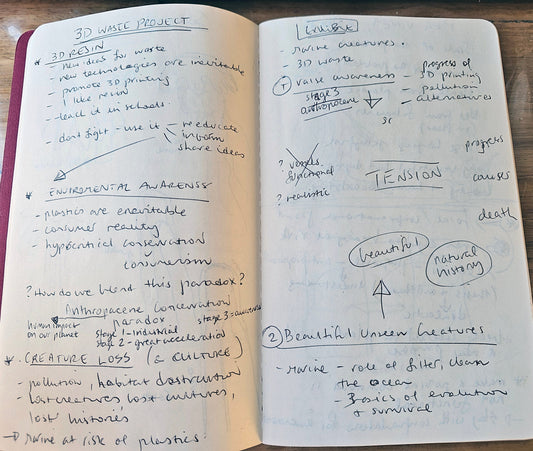 3D WASTE PROJECT
* 3D RESIN
- new ideas for waste
- new technologies are inevitable
- promote 3D printing
I like resin
- teach it in schools.
- dont fight - use it - re-educate
inform
share ideas
* ENVIROMENTAL AWARENSS
- plastics are enevitable
- consumer reality
- hypocritical conservation
v
consumerism
? How do we blend this paradox?
Anthropocene Conservation
paradox
human impact
on our planet
stage 1 - industrial
stage 2 - great acceleration
stage 3 =
* CREATURE LOSS (& CULTURE)
- pollution, habitat distruction
- lost creatures lost cultures,
lost histories
→ marine at risk of plastics.
- Marine creatures.
- 3D waste
1 raise awareness
stage 3
anthropocene
- progress of
3D printing
- pollution
- alternatives
or
? vessels
functional
? realistic
TENSION
progress
causes
death
beautiful
natural
history
2) Beautiful Unseen Creatures
- Marine - role of filter, clean
the ocean
- Basics of evolution
+ survival